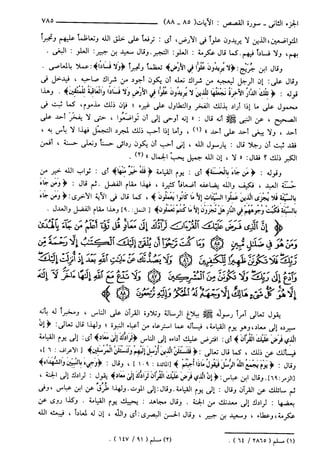 الجزء الثاني ـ سورة القصص : الآيات (٨٥ ـ ٨٨) ٧٨٥
المتواضعين، الذين لا يريدون علواً في الأرض، أي : ترفعاً على خلق الله وتعاظماً عليهم وتجبراً
بهم، ولا فساداً فيهم. كما قال عكرمة : العلو: التجبر. وقال سعيد بن جبير: العلو : البغي.
وقال ابن جريج: ﴿لا يريدون علواً في الأرض﴾ تعاظماً وتجبراً ﴿ولا فساداً﴾: عملاً بالمعاصي.
وقال علي: إن الرجل ليعجبه من شراك نعله أن يكون أجود من شراك صاحبه ، فيدخل في
قوله : ﴿تلك الدار الآخرة نجعلها للذين لا يريدون علواً في الأرض ولا فساداً والعاقبة للمتقين﴾. وهذا
محمول على ما إذا أراد بذلك الفخر والتطاول على غيره ؛ فإن ذلك مذموم، كما ثبت في
الصحيح ، عن النبي ﷺ أنه قال : «إنه أوحي إلي أن تواضعوا ، حتى لا يفخر أحد على
أحد ، ولا يبغي أحد على أحد » (١) ، وأما إذا أحب ذلك لمجرد التجمل فهذا لا بأس به ،
فقد ثبت أن رجلاً قال : يارسول الله ، إني أحب أن يكون ردائي حسناً ونعلي حسنة ، أفمن
الكبر ذلك ؟ فقال: « لا ، إن الله جميل يحب الجمال » (٢).
وقوله : ﴿من جاء بالحسنة﴾ أي : يوم القيامة ﴿فله خير منها﴾ أي : ثواب الله خير من
حسنة العبد ، فكيف والله يضاعفه أضعافاً كثيرة ، فهذا مقام الفضل. ثم قال : ﴿ومن جاء
بالسيئة فلا يجزى الذين عملوا السيئات إلا ما كانوا يعملون﴾ ، كما قال في الآية الأخرى: ﴿ومن جاء
بالسيئة فكبت وجوههم في النار هل تجزون إلا ما كنتم تعملون﴾ [النمل : ٩٠] وهذا مقام الفضل والعدل.
﴿إن الذي فرض عليك القرآن لرادك إلى معاد قل ربي أعلم من جاء بالهدى
ومن هو في ضلال مبين وما كنت ترجو أن يلقى إليك الكتاب إلا رحمة من
ربك فلا تكونن ظهيراً للكافرين ولا يصدنك عن آيات الله بعد إذ أنزلت إليك
وادع إلى ربك ولا تكونن من المشركين ولا تدع مع الله إلهاً آخر لا إله
إلا هو كل شيء هالك إلا وجهه له الحكم وإليه ترجعون﴾
يقول تعالى آمراً رسوله ﷺ ببلاغ الرسالة وتلاوة القرآن على الناس ، ومخبراً له بأنه
سيرده إلى معاد، وهو يوم القيامة ، فيسأله عما استرعاه من أعباء النبوة ؛ ولهذا قال تعالى: ﴿إن
الذي فرض عليك القرآن لرادك إلى معاد﴾ أي : افترض عليك أداءه إلى الناس ﴿لرادك إلى معاد﴾ أي : إلى يوم القيامة
فيسألك عن ذلك ، كما قال تعالى : ﴿فلنسألن الذين أرسل إليهم ولنسألن المرسلين﴾ [الأعراف : ٦] ،
وقال : ﴿يوم يجمع الله الرسل فيقول ماذا أجبتم﴾ [المائدة : ١٠٩] ، وقال : ﴿وجيء بالنبيين والشهداء﴾
[الزمر: ٦٩]. وقال ابن عباس: ﴿إن الذي فرض عليك القرآن لرادك إلى معاد﴾ يقول : لرادك إلى الجنة ،
ثم سائلك عن القرآن وقال : إلى يوم القيامة. وقال: إلى الموت. ولهذا طرق عن ابن عباس، وفي
بعضها : لرادك إلى معدنك من الجنة . وقال مجاهد : يحييك يوم القيامة . وكذا روي عن
عكرمة، وعطاء ، وسعيد بن جبير ، وقال الحسن البصري: أي والله ، إن له لمعاداً ، فيبعثه الله
(١) مسلم (٢٨٦٥ / ٦٤). (٢) مسلم ( ٩١ / ١٤٧).